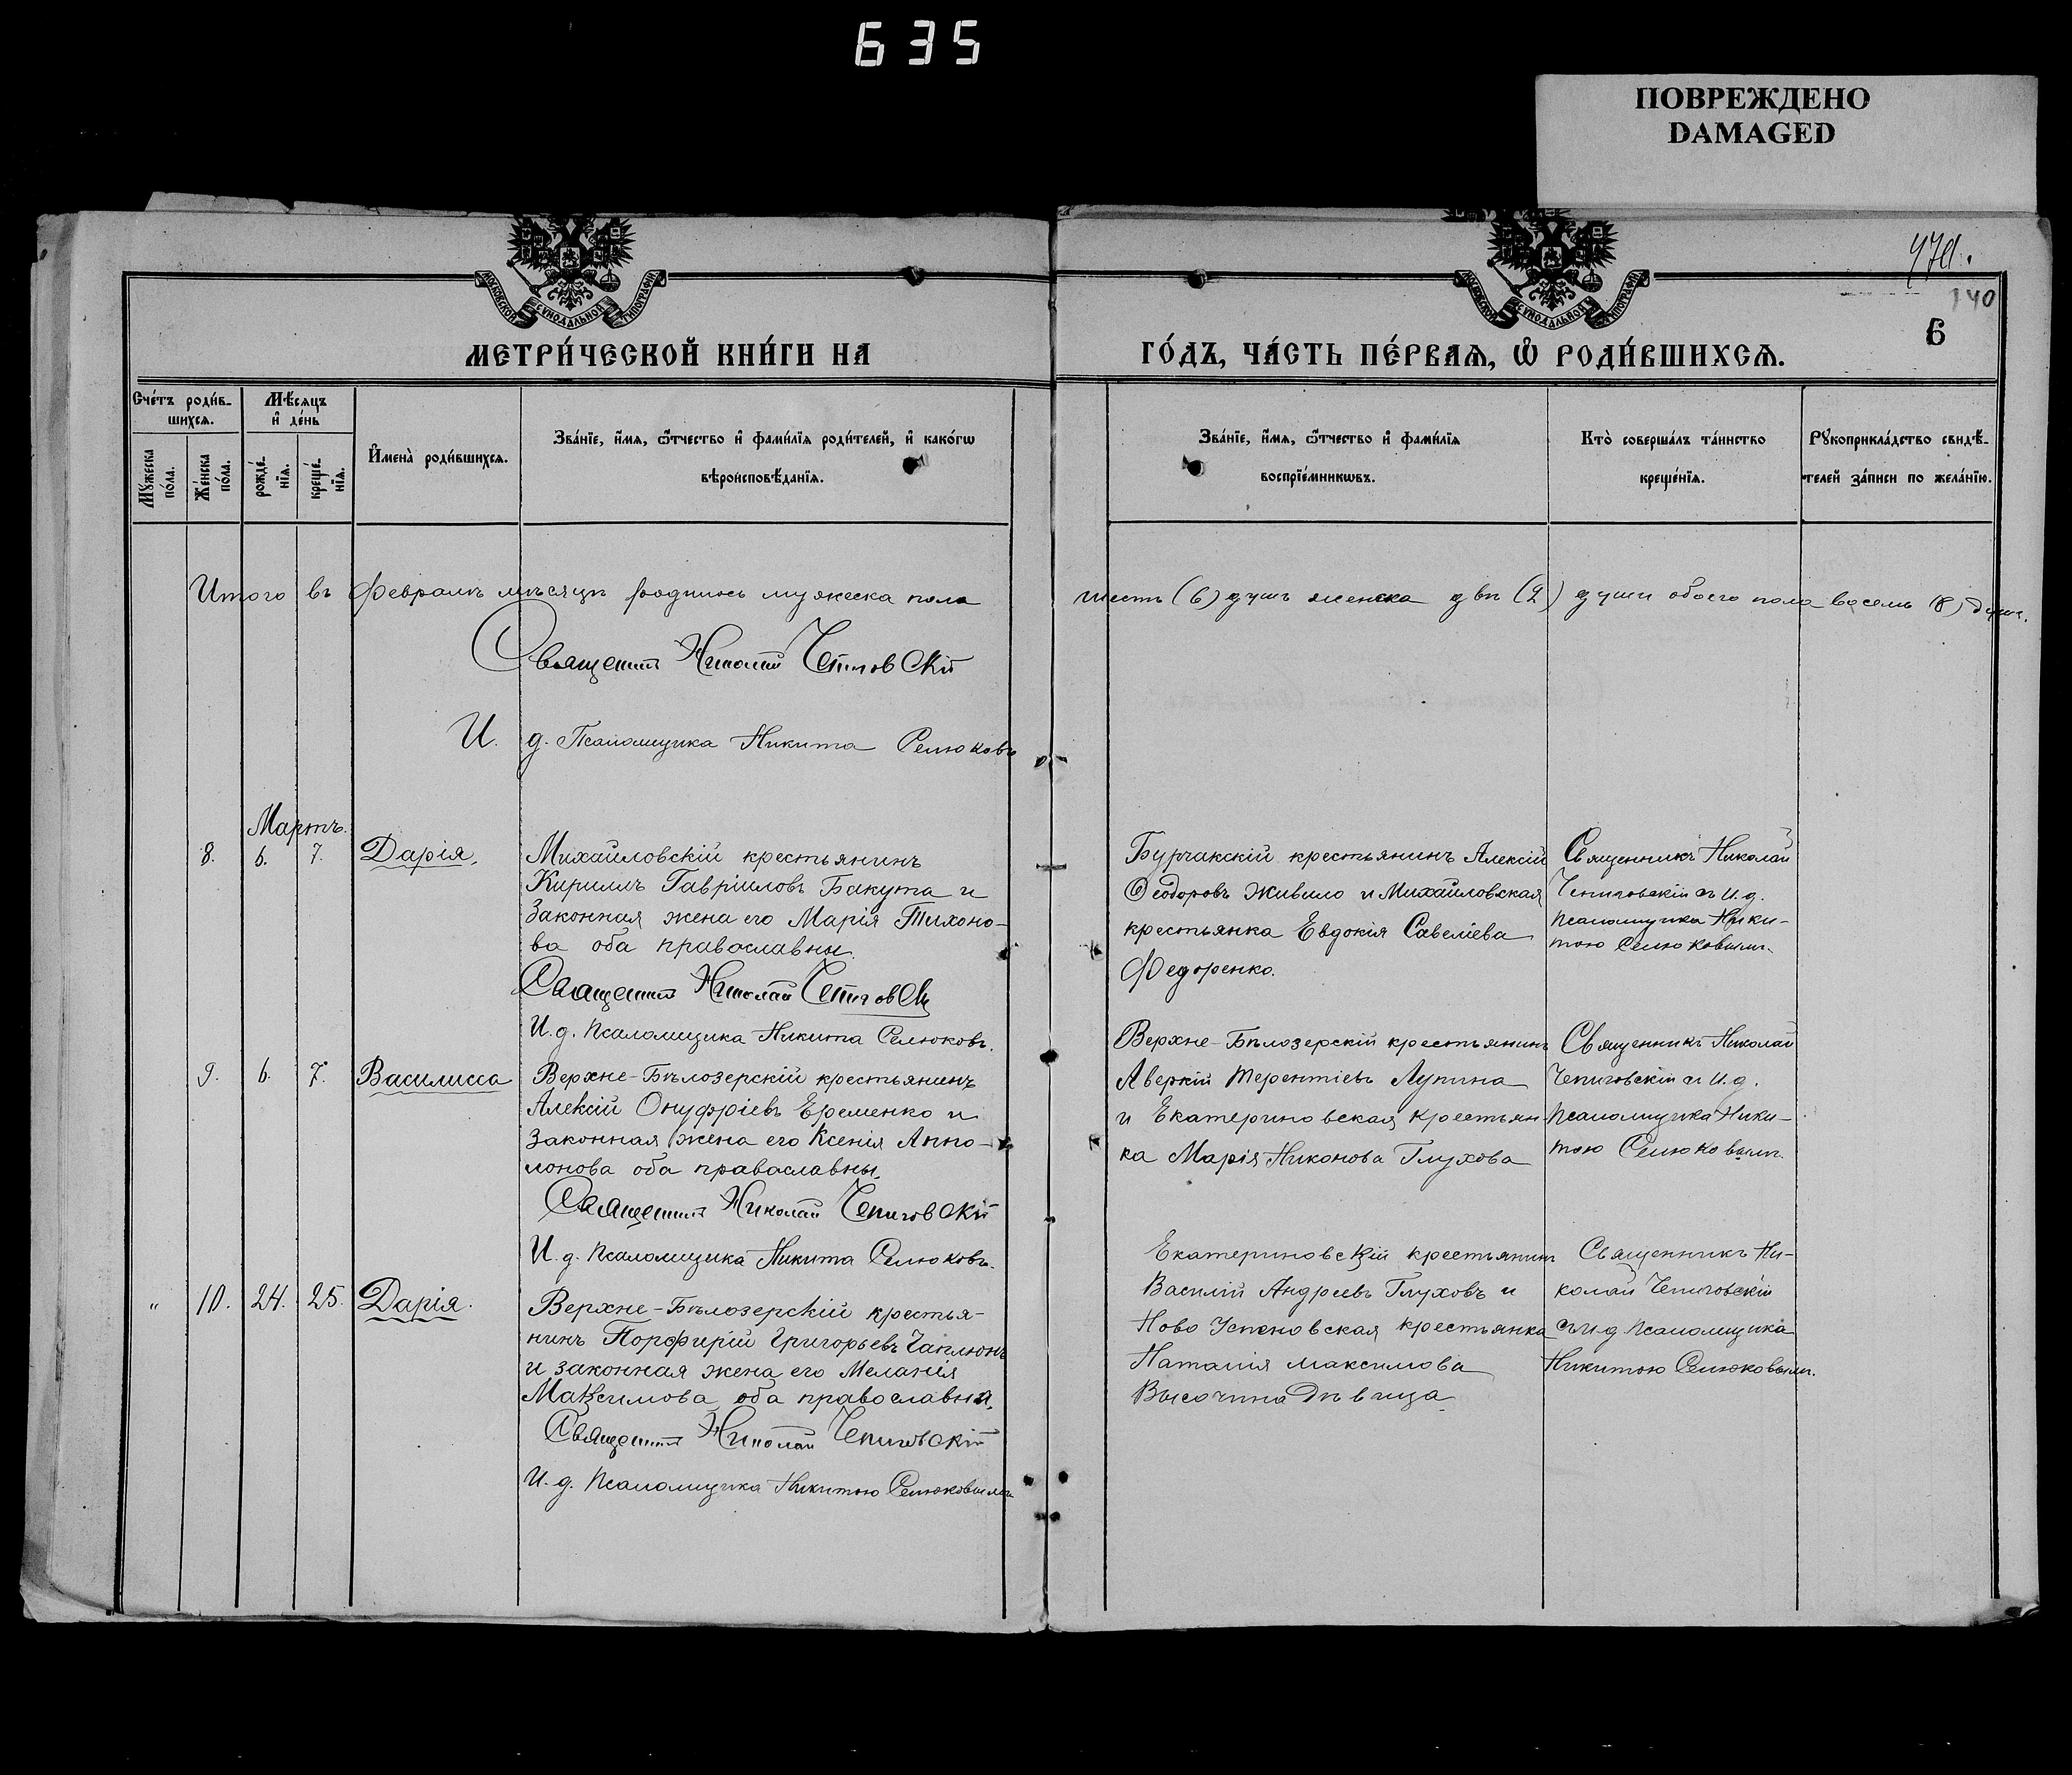 635
ПОВРЕЖДЕНО
DAMAGED
МОСКОВСКОЙ СѴНОДАЛЬНОЙ ТИПОГРАФІИ
МОСКОВСКОЙ СѴНОДАЛЬНОЙ ТИПОГРАФІИ
140
6
МЕТРИ́ЧЕСКОЙ КНИ́ГИ НА
ГО́ДЪ, ЧА́СТЬ ПЕ́РВАѦ, Ѡ҆ РОДИ́ВШИХСѦ.
Сче́тъ роди́в-
шихсѧ.
Мѣ́сѧцъ
и҆ де́нь
Мꙋ́жеска
по́ла.
Же́нска
по́ла.
рожде́-
нїѧ.
креще́-
нїѧ.
И҆мена̀ роди́вшихсѧ.
Зва́нїе, и҆́мѧ, ѻ҆́тчество и҆ фами́лїѧ роди́телей, и҆ како́гѡ
вѣроисповѣ́данїѧ.
Зва́нїе, и҆́мѧ, ѻ҆́тчество и҆ фами́лїѧ
воспрїе́мникѡвъ.
Кто̀ соверша́лъ та́инство
креще́нїѧ.
Рꙋкоприкла́дство свидѣ́-
телей за́писи по жела́нїю.
Итого въ Февралѣ мѣсяцѣ родилось мужеска пола шесть (6) душъ женска двѣ (2) души обоего пола восемь (8) душъ.
Священник Николай Чепиговский
И. д. Псаломщика Никита Селюковъ
Мартъ.
8. 6. 7. Дарія.
Михайловскій крестьянинъ
Кириллъ Гавріиловъ Бакута и
законная жена его Марія Тихоно-
ва оба православны.
Священник Николай Чепиговский
И. д. псаломщика Никита Селюковъ.
Бурчакскій крестьянинъ Алексій
Ѳеодоровъ Живило и Михайловская
крестьянка Евдокія Савеліева
Федоренко.
Священникъ Николай
Чепиговскій съ И. д.
псаломщика Ники-
тою Селюковымъ.
9. 6. 7. Василисса
Верхне-Бѣлозерскій крестьянинъ
Алексій Онуфріевъ Еременко и
законная жена его Ксенія Аппо-
лонова оба православны.
Священник Николай Чепиговскій
И. д. псаломщика Никита Селюковъ.
Верхне-Бѣлозерскій крестьянинъ
Аверкій Терентіевъ Лупина
и Екатериновская крестьян-
ка Марія Никонова Глухова
Священникъ Николай
Чепиговскій съ И. д.
псаломщика Ники-
тою Селюковымъ.
" 10. 24. 25. Дарія.
Верхне-Бѣлозерскій крестья-
нинъ Порфирій Григорьевъ Чаплюнъ
и законная жена его Меланія
Максимова оба православны.
Священник Николай Чепиговскій
И. д. псаломщика Никитою Селюковымъ
Екатериновскій крестьянинъ
Василій Андреевъ Глуховъ и
Ново Успеновская крестьянка
Наталія Максимова
Высочина Дѣвица
Священникъ Ни-
колай Чепиговскій
съ и д псаломщика
Никитою Селюковымъ.